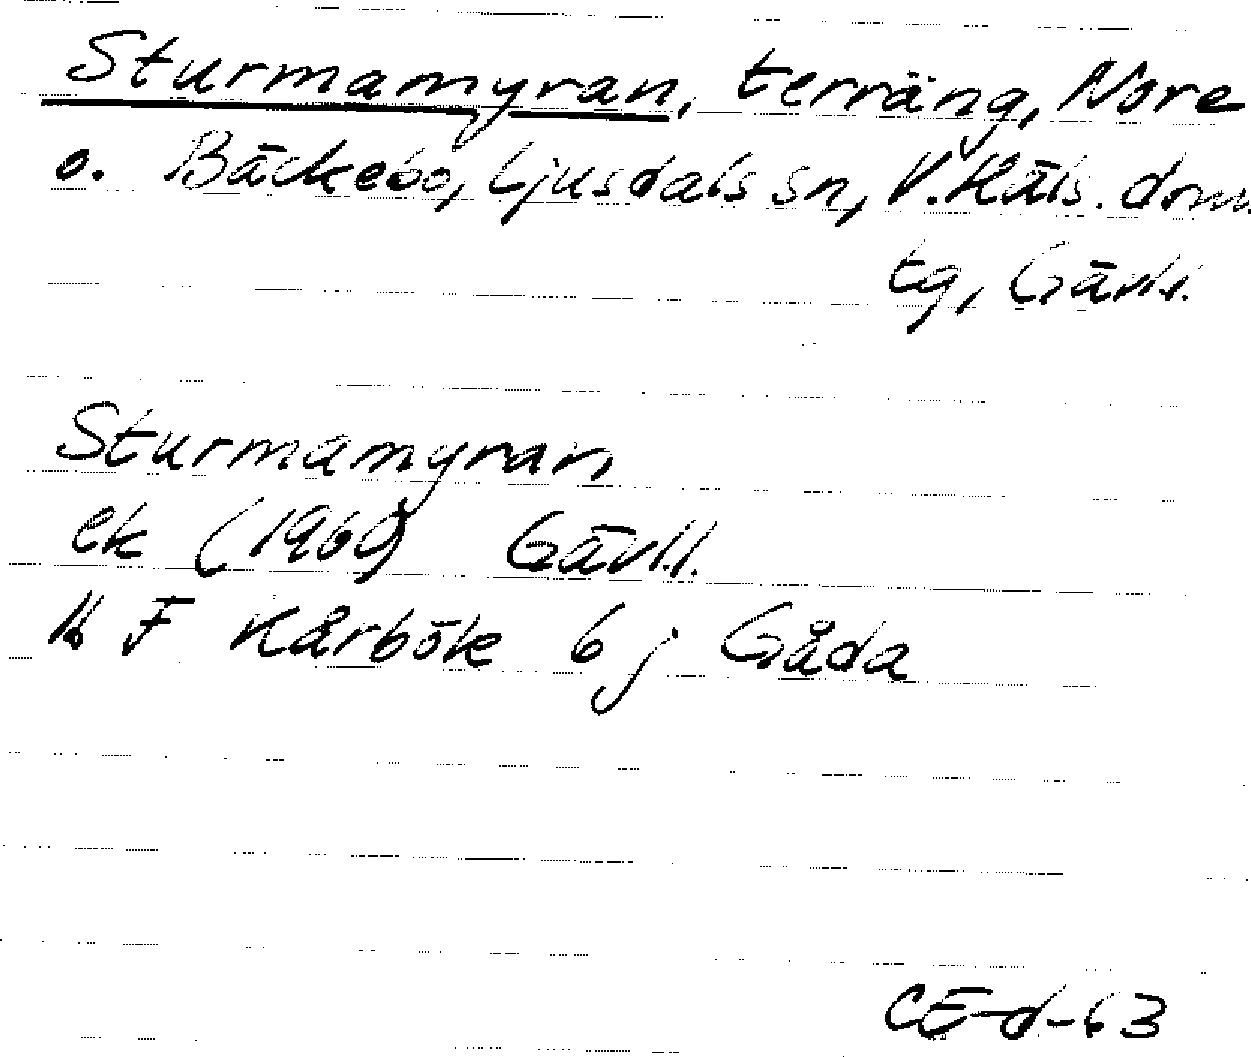 Sturmamyran, terräng, Nore
o. Bäckebo, Ljusdals sn, V. Häls. dom.
tg, Gävl.l.
Sturmamyran
ek (1960) Gävl.l.
16 F Kårböle 6 j Gåda
CE-d-63